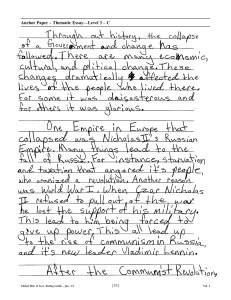 Anchor Paper – Thematic Essay—Level 3 – C
Through out history, the collapse
of a Government and change has
followed. There are many economic,
cultural, and political change. These
changes dramatically affected the
lives of the people who lived there.
For some it was daisasterous and
for others it was glorious.
One Empire in Europe that
collapsed was Nicholas II's Russian
Empire. Many things lead to the
fall of Russia. For instance, starvation
and taxation that angered it's people,
who organized a revolution. Another reason
was World War I. When Czar Nicholas
II refused to pull out of the war
he lost the support of his military.
This lead to him being forced to
give up power. This all lead up
to the rise of communism in Russia
and it's new leader Vladimir Lennin.
After the Communist Revolution,
[35]
Vol. 1